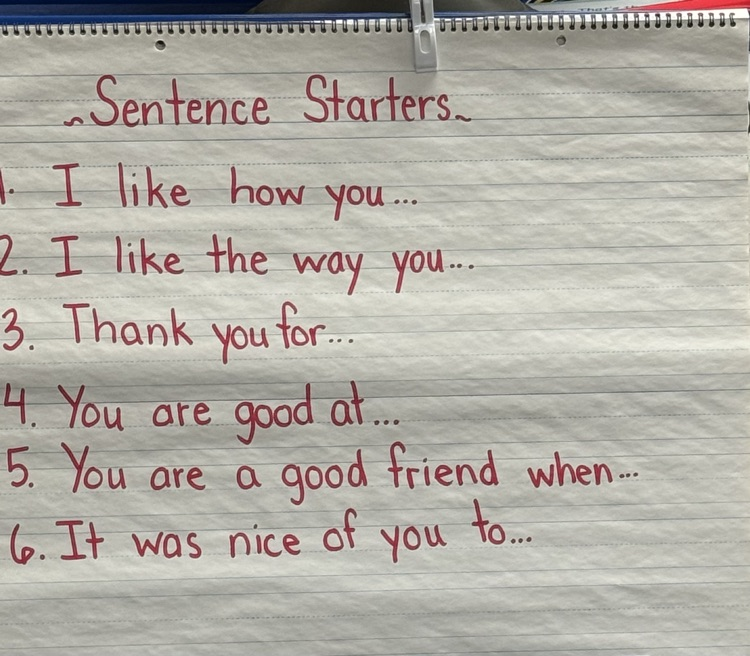 ~Sentence Starters~
1. I like how you...
2. I like the way you...
3. Thank you for...
4. You are good at...
5. You are a good friend when...
6. It was nice of you to...